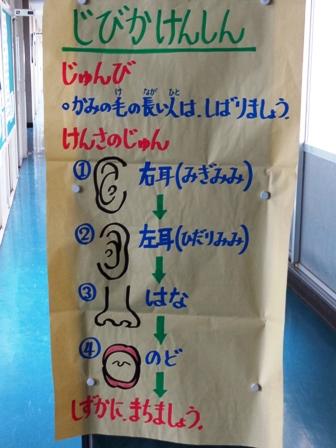 じびかけんしん
じゅんび
。かみの毛の長い人は、しばりましょう。
けんさのじゅん
① 右耳(みぎみみ)
② 左耳(ひだりみみ)
③ はな
④ のど
しずかに、まちましょう。